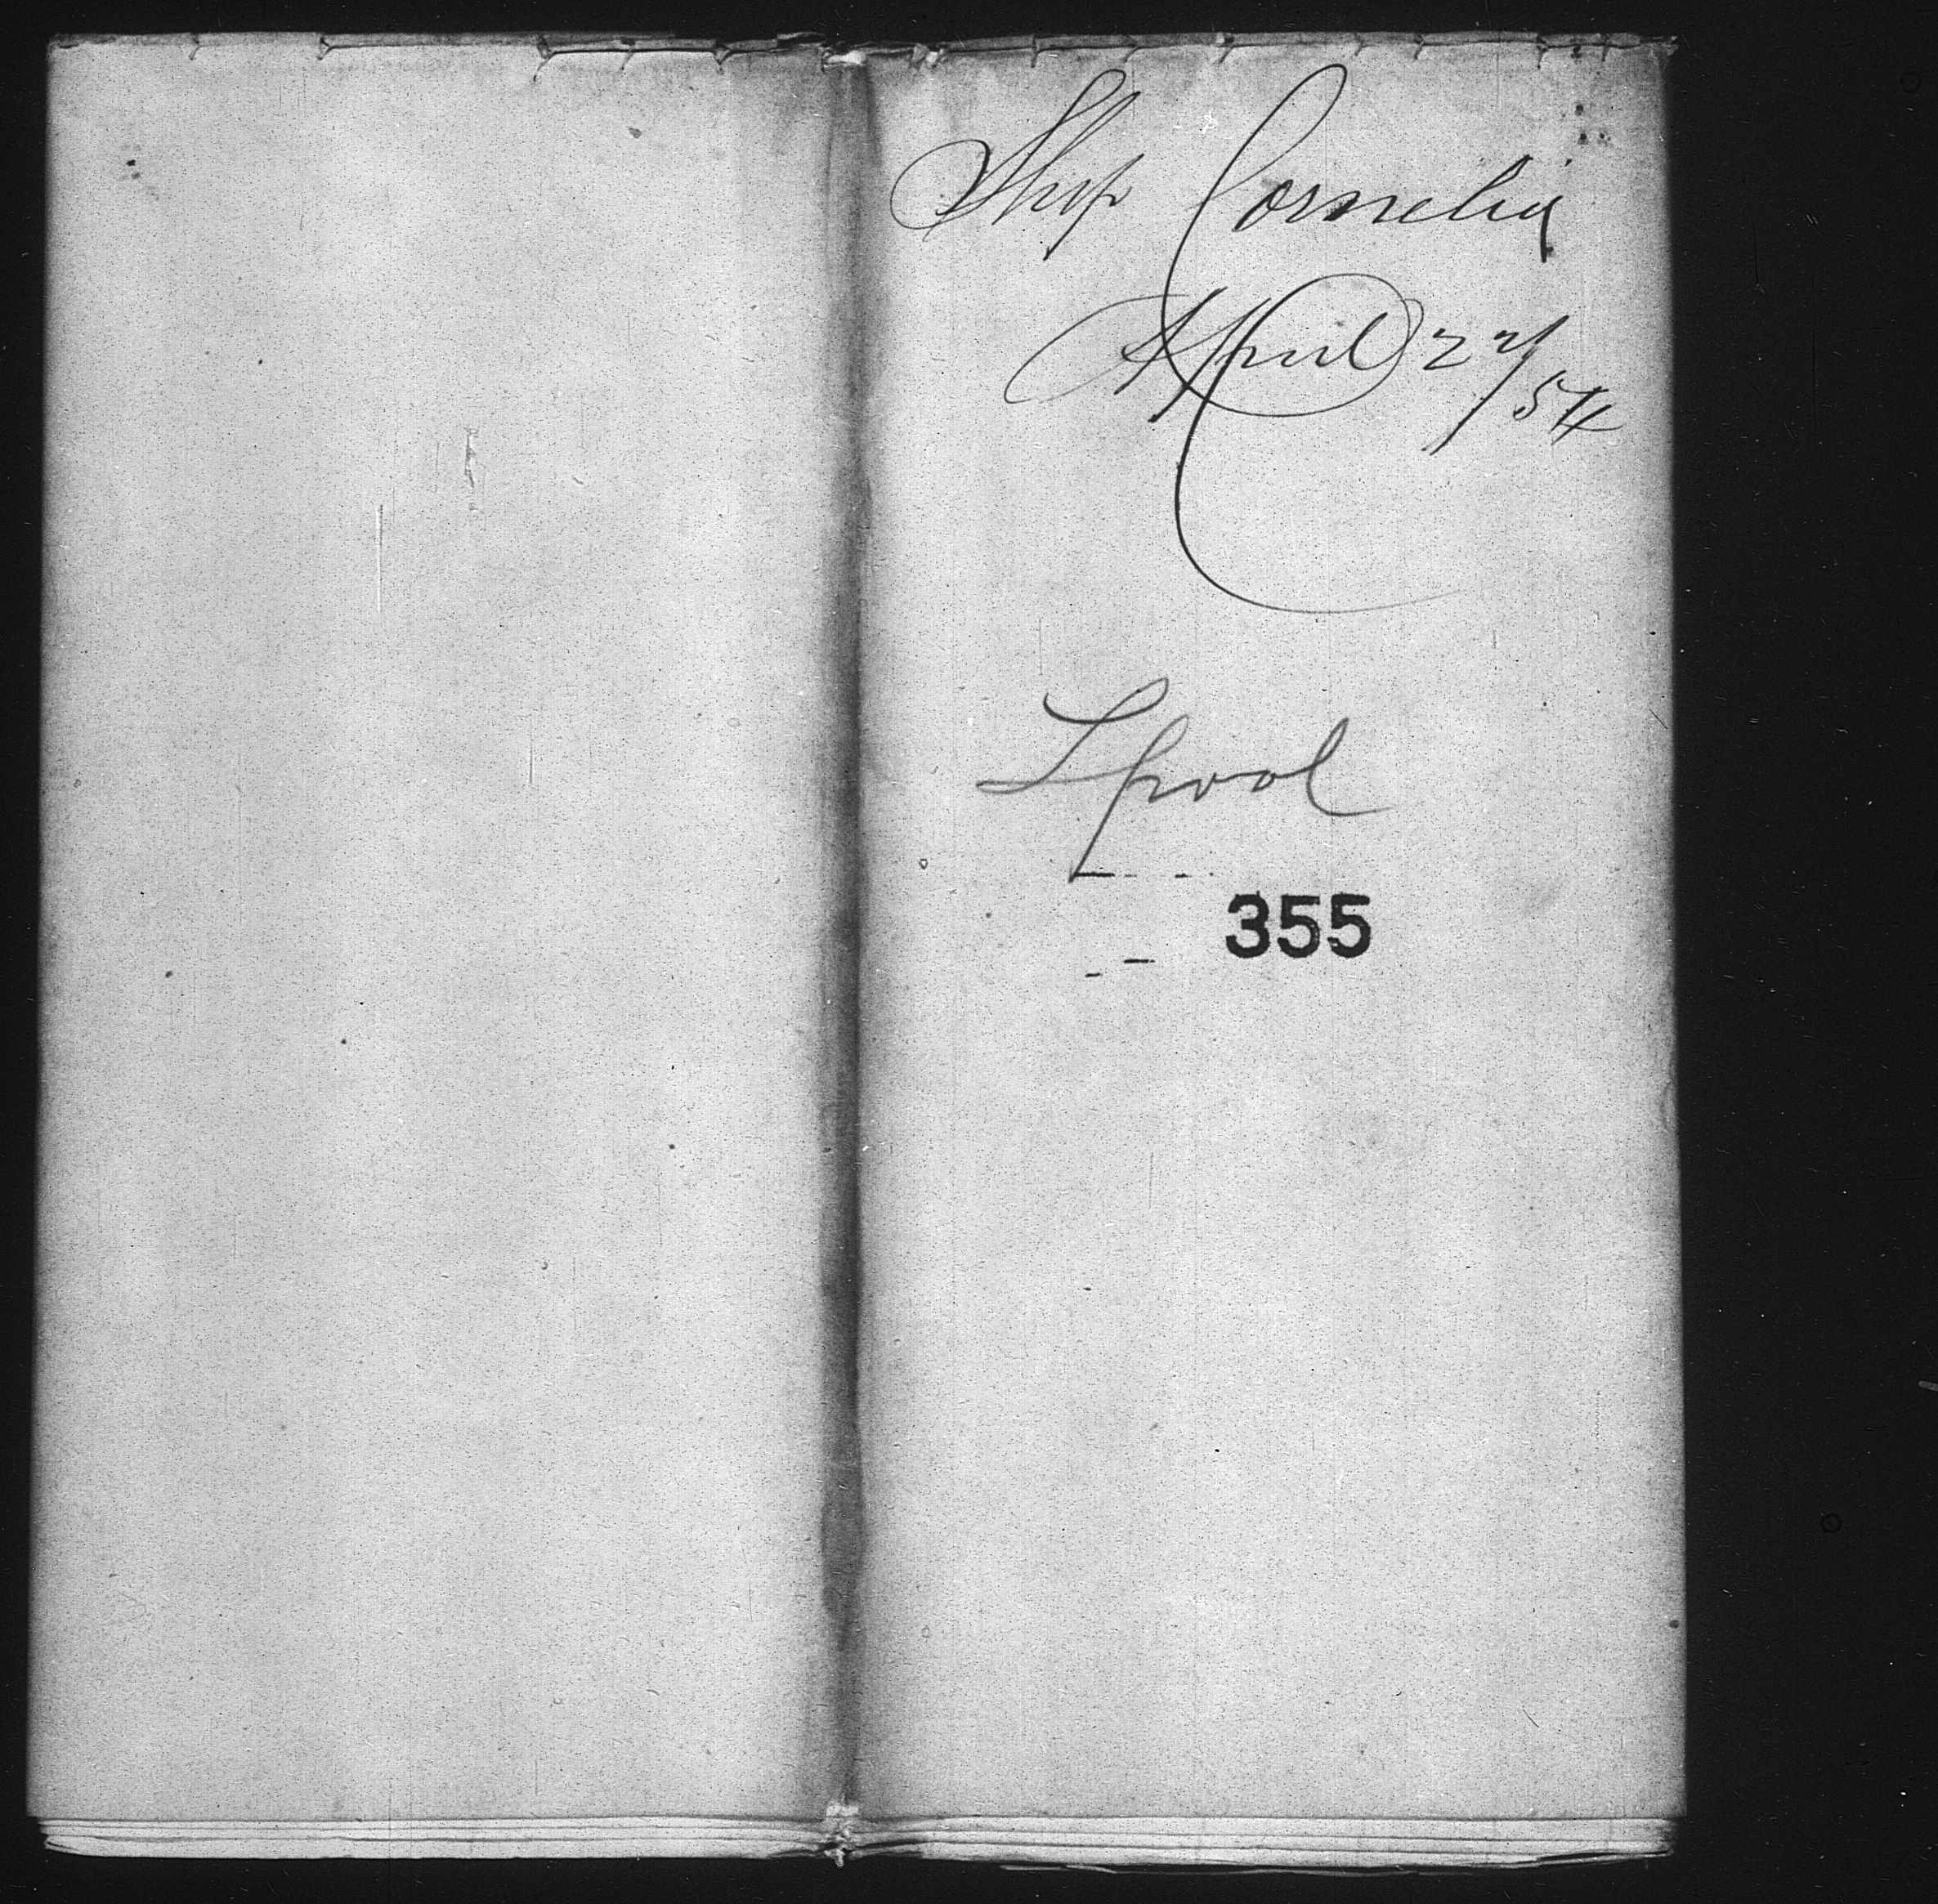 Ship Cornelia
April 22/54
Lpool
355